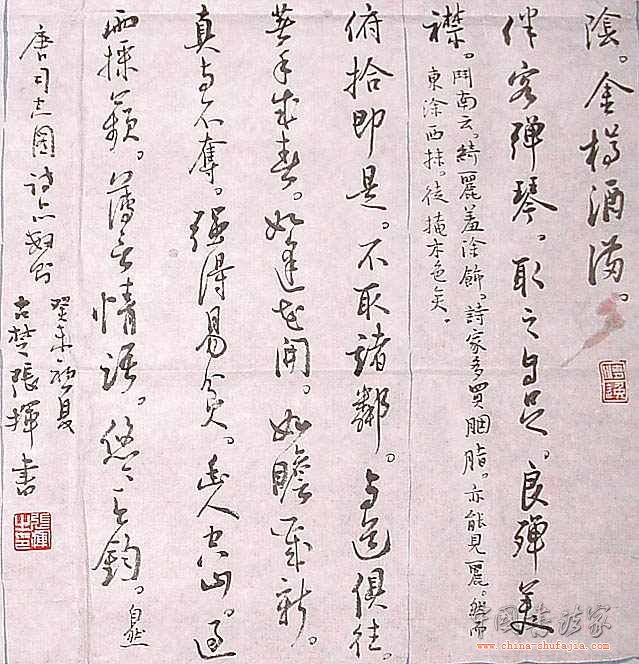 陰。金樽酒满。
伴客弹琴。取之自足。良殫美
襟。
鬥南云。綺麗羞涂飾。詩家多買胭脂。亦能見麗。然而
東涂西抹。徒掩本色矣。
俯拾即是。不取諸鄰。与道俱往。
著手成春。如逢花開。如瞻歲新。
真与不奪。强得易貧。幽人空山。過
雨採蘋。薄言情语。悠悠天鈞。自然
唐司空圖詩品數則
癸未初夏
古楚張揮书
中国书法家
www.china-shufajia.com